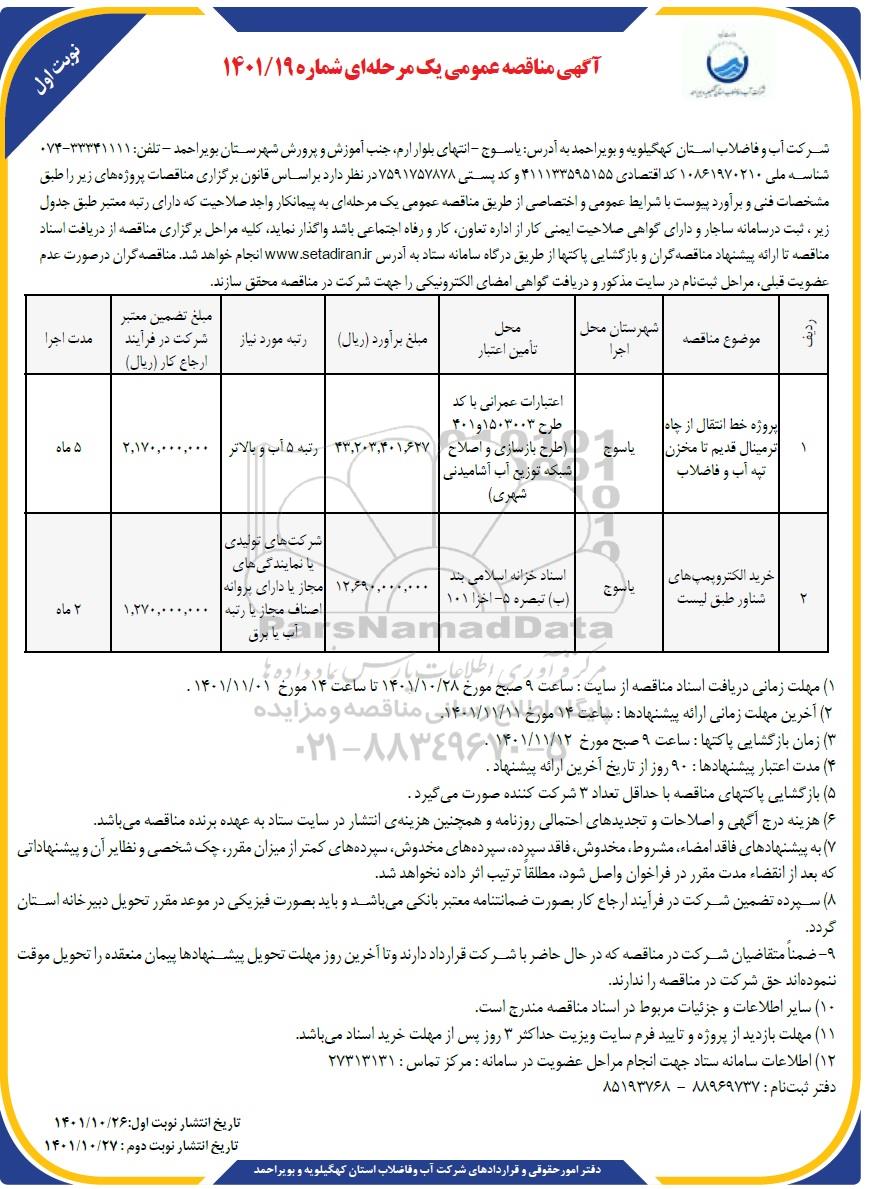 نوبت اول
آگهی مناقصه عمومی یک مرحله‌ای شماره ۱۴۰۱/۱۹
شرکت آب و فاضلاب استان کهگیلویه و بویراحمد
شرکت آب و فاضلاب استان کهگیلویه و بویراحمد به آدرس: یاسوج – انتهای بلوار ارم، جنب آموزش و پرورش شهرستان بویراحمد – تلفن: ۳۳۳۴۱۱۱۱-۰۷۴
شناسه ملی ۱۰۸۶۱۹۷۰۲۱۰ کد اقتصادی ۴۱۱۱۳۳۵۹۵۱۵۵ و کد پستی ۷۵۹۱۷۵۷۸۷۸ در نظر دارد براساس قانون برگزاری مناقصات پروژه‌های زیر را طبق
مشخصات فنی و برآورد پیوست با شرایط عمومی و اختصاصی از طریق مناقصه عمومی یک مرحله‌ای به پیمانکار واجد صلاحیت که دارای رتبه معتبر طبق جدول
زیر ، ثبت درسامانه ساجار و دارای گواهی صلاحیت ایمنی کار از اداره تعاون، کار و رفاه اجتماعی باشد واگذار نماید، کلیه مراحل برگزاری مناقصه از دریافت اسناد
مناقصه تا ارائه پیشنهاد مناقصه‌گران و بازگشایی پاکتها از طریق درگاه سامانه ستاد به آدرس www.setadiran.ir انجام خواهد شد. مناقصه‌گران درصورت عدم
عضویت قبلی، مراحل ثبت‌نام در سایت مذکور و دریافت گواهی امضای الکترونیکی را جهت شرکت در مناقصه محقق سازند.
ردیف
موضوع مناقصه
شهرستان محل
اجرا
محل
تأمین اعتبار
مبلغ برآورد (ریال)
رتبه مورد نیاز
مبلغ تضمین معتبر
شرکت در فرآیند
ارجاع کار (ریال)
مدت اجرا
۱
پروژه خط انتقال از چاه
ترمینال قدیم تا مخزن
تپه آب و فاضلاب
یاسوج
اعتبارات عمرانی با کد
طرح ۱۵۰۳۰۰۳و۴۰۱
(طرح بازسازی و اصلاح
شبکه توزیع آب آشامیدنی
شهری)
۴۳,۲۰۳,۴۰۱,۶۲۷
رتبه ۵ آب و بالاتر
۲,۱۷۰,۰۰۰,۰۰۰
۵ ماه
۲
خرید الکتروپمپ‌های
شناور طبق لیست
یاسوج
اسناد خزانه اسلامی بند
(ب) تبصره ۵- اخزا ۱۰۱
۱۲,۶۹۰,۰۰۰,۰۰۰
شرکت‌های تولیدی
یا نمایندگی‌های
مجاز یا دارای پروانه
اصناف مجاز یا رتبه
آب یا برق
۱,۲۷۰,۰۰۰,۰۰۰
۲ ماه
ParsNamadData
مرکز فرآوری اطلاعات پارس نماد داده‌ها
پایگاه اطلاع رسانی مناقصه و مزایده
۰۲۱-۸۸۳۴۹۶۷۰-۵
۱) مهلت زمانی دریافت اسناد مناقصه از سایت : ساعت ۹ صبح مورخ ۱۴۰۱/۱۰/۲۸ تا ساعت ۱۴ مورخ ۱۴۰۱/۱۱/۰۱ .
۲) آخرین مهلت زمانی ارائه پیشنهادها : ساعت ۱۴ مورخ ۱۴۰۱/۱۱/۱۱.
۳) زمان بازگشایی پاکتها : ساعت ۹ صبح مورخ ۱۴۰۱/۱۱/۱۲ .
۴) مدت اعتبار پیشنهادها : ۹۰ روز از تاریخ آخرین ارائه پیشنهاد .
۵) بازگشایی پاکتهای مناقصه با حداقل تعداد ۳ شرکت کننده صورت می‌گیرد .
۶) هزینه درج آگهی و اصلاحات و تجدیدهای احتمالی روزنامه و همچنین هزینه‌ی انتشار در سایت ستاد به عهده برنده مناقصه می‌باشد.
۷) به پیشنهادهای فاقد امضاء، مشروط، مخدوش، فاقد سپرده، سپرده‌های مخدوش، سپرده‌های کمتر از میزان مقرر، چک شخصی و نظایر آن و پیشنهاداتی
که بعد از انقضاء مدت مقرر در فراخوان واصل شود، مطلقاً ترتیب اثر داده نخواهد شد.
۸) سپرده تضمین شرکت در فرآیند ارجاع کار بصورت ضمانتنامه معتبر بانکی می‌باشد و باید بصورت فیزیکی در موعد مقرر تحویل دبیرخانه استان
گردد.
۹- ضمناً متقاضیان شرکت در مناقصه که در حال حاضر با شرکت قرارداد دارند وتا آخرین روز مهلت تحویل پیشنهادها پیمان منعقده را تحویل موقت
ننموده‌اند حق شرکت در مناقصه را ندارند.
۱۰) سایر اطلاعات و جزئیات مربوط در اسناد مناقصه مندرج است.
۱۱) مهلت بازدید از پروژه و تایید فرم سایت ویزیت حداکثر ۳ روز پس از مهلت خرید اسناد می‌باشد.
۱۲) اطلاعات سامانه ستاد جهت انجام مراحل عضویت در سامانه : مرکز تماس : ۲۷۳۱۳۱۳۱
دفتر ثبت‌نام : ۸۸۹۶۹۷۳۷ - ۸۵۱۹۳۷۶۸
تاریخ انتشار نوبت اول:۱۴۰۱/۱۰/۲۶
تاریخ انتشار نوبت دوم : ۱۴۰۱/۱۰/۲۷
دفتر امورحقوقی و قراردادهای شرکت آب وفاضلاب استان کهگیلویه و بویراحمد